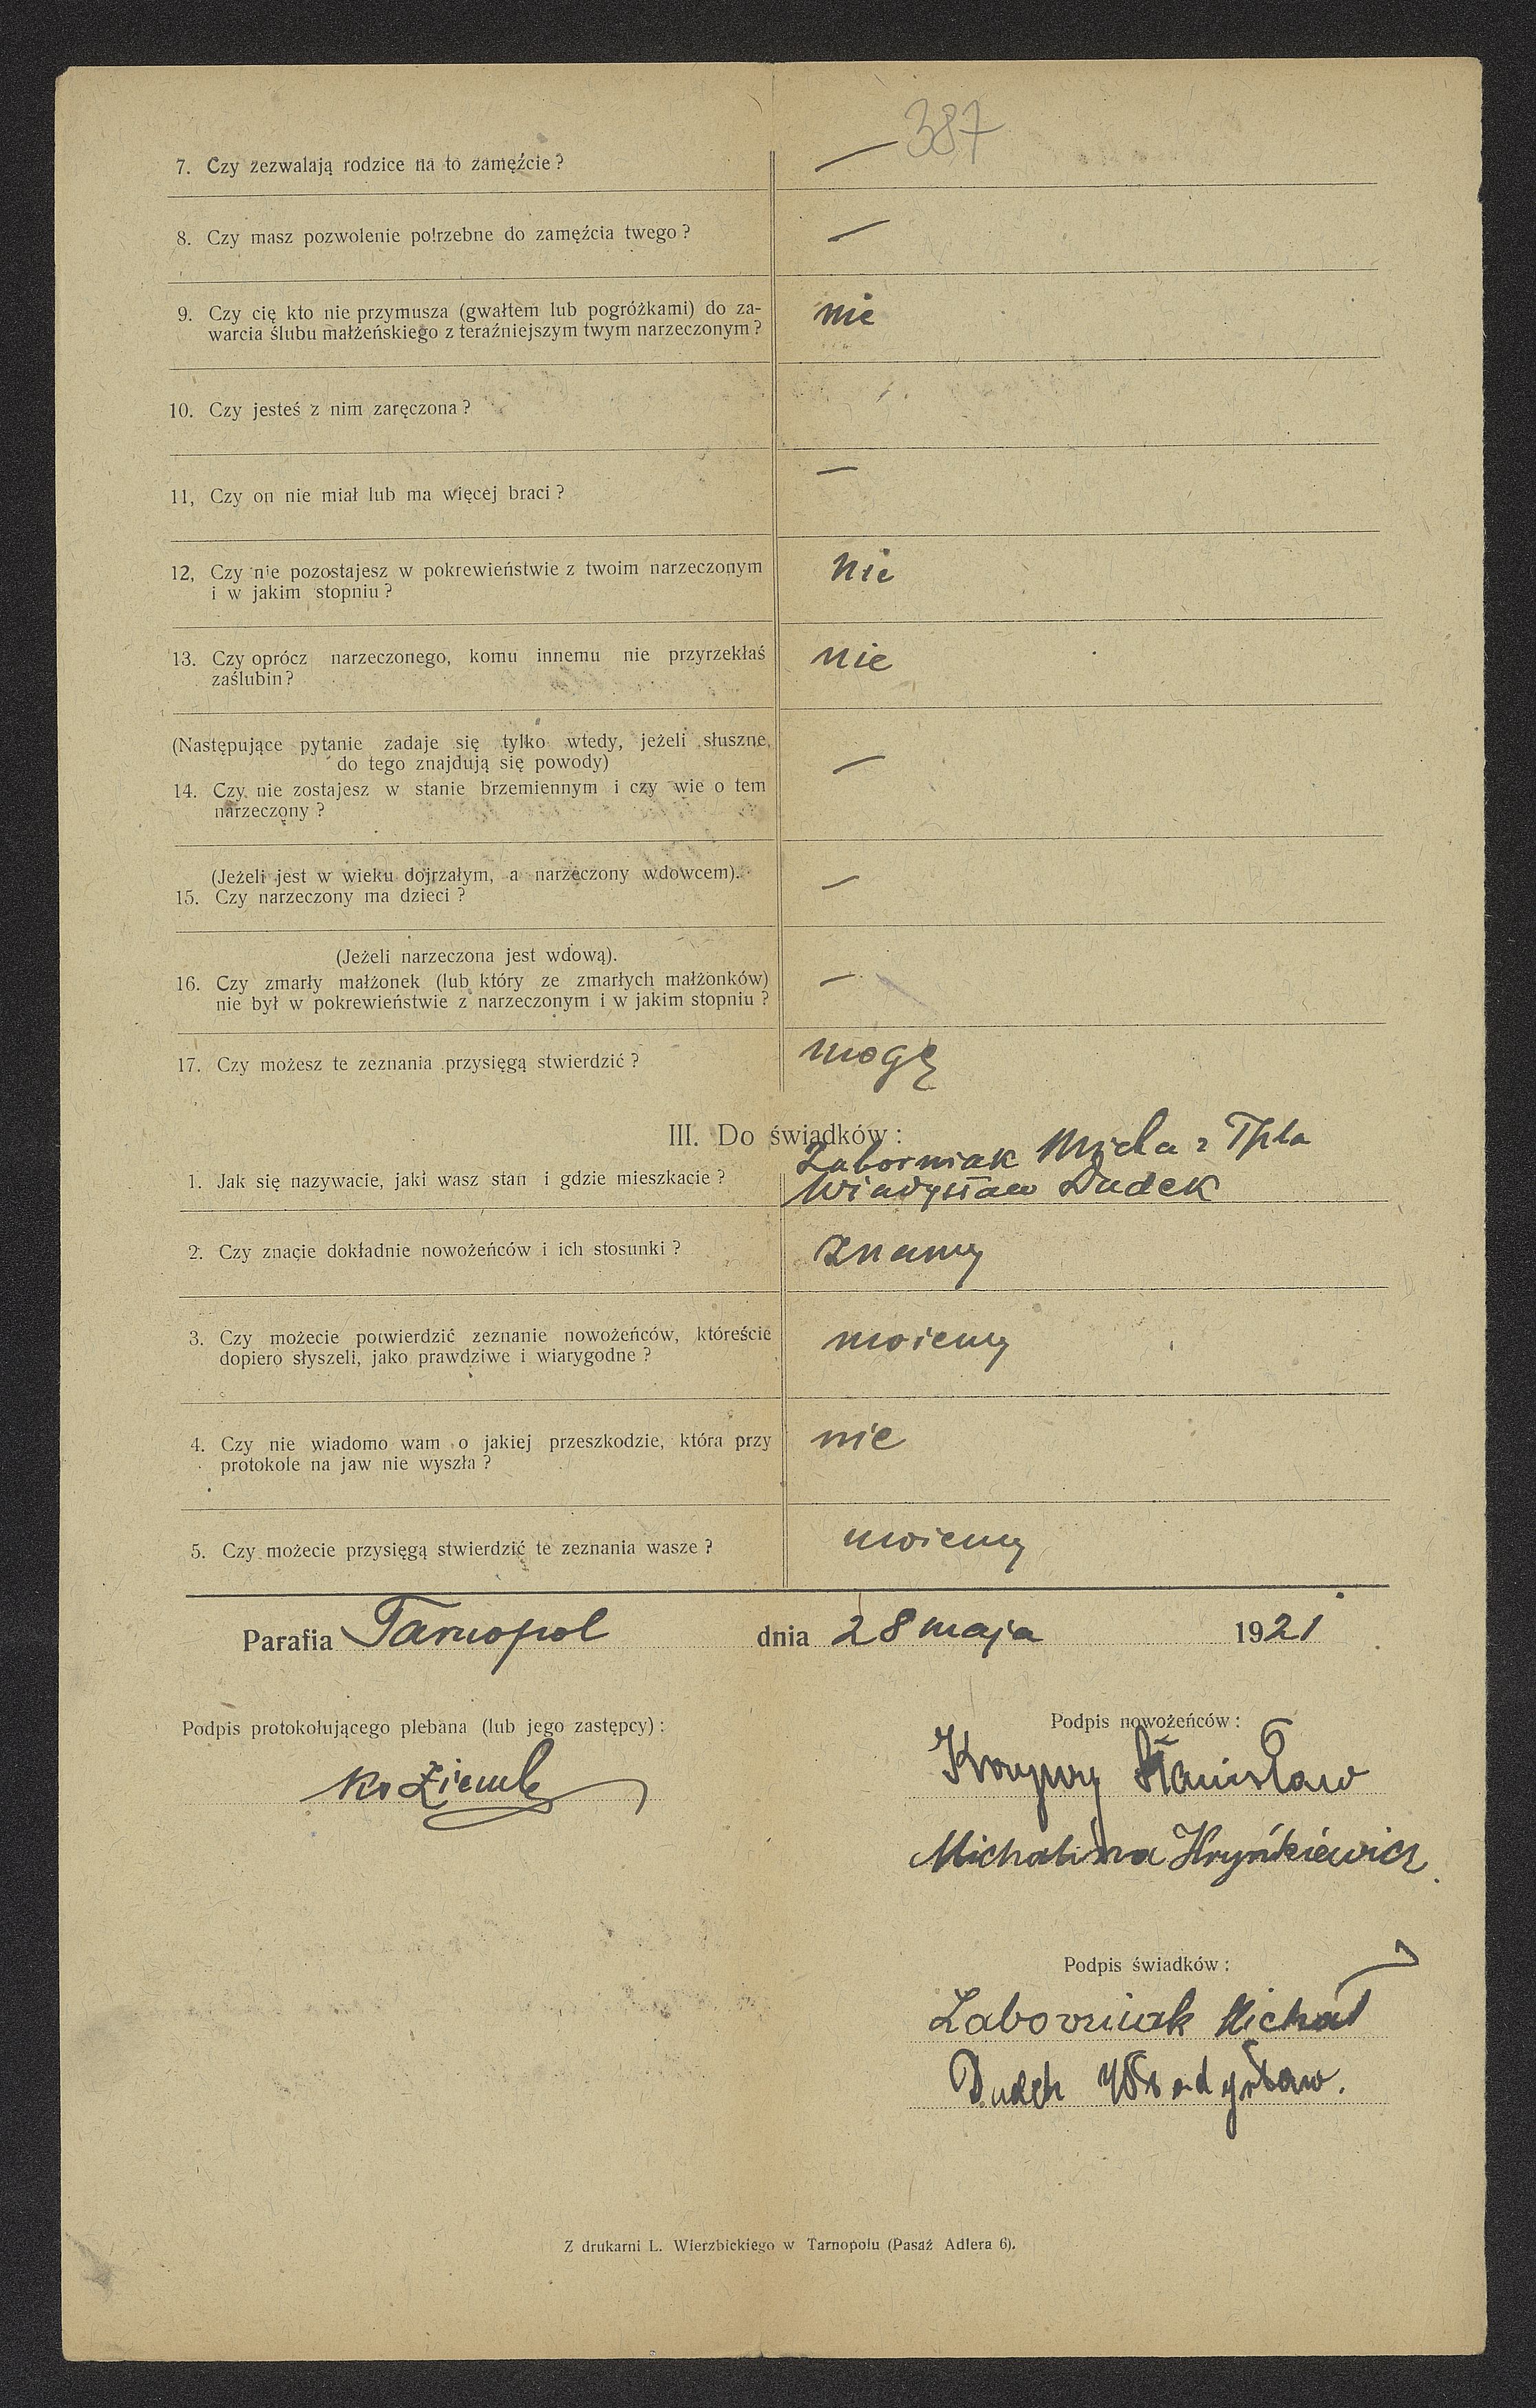 387
7. Czy zezwalają rodzice na to zamęźcie? —
8. Czy masz pozwolenie potrzebne do zamęźcia twego? —
9. Czy cię kto nie przymusza (gwałtem lub pogróżkami) do za-
warcia ślubu małżeńskiego z teraźniejszym twym narzeczonym?
nie
10. Czy jesteś z nim zaręczona?
11, Czy on nie miał lub ma więcej braci? —
12, Czy nie pozostajesz w pokrewieństwie z twoim narzeczonym
i w jakim stopniu?
nie
13. Czy oprócz narzeczonego, komu innemu nie przyrzekłaś
zaślubin?
nie
(Następujące pytanie zadaje się tylko wtedy, jeżeli słuszne,
do tego znajdują się powody)
14. Czy nie zostajesz w stanie brzemiennym i czy wie o tem
narzeczony?
—
(Jeżeli jest w wieku dojrzałym, a narzeczony wdowcem).
15. Czy narzeczony ma dzieci? —
(Jeżeli narzeczona jest wdową).
16. Czy zmarły małżonek (lub który ze zmarłych małżonków)
nie był w pokrewieństwie z narzeczonym i w jakim stopniu?
—
17. Czy możesz te zeznania przysięgą stwierdzić? mogę
III. Do świadków:
1. Jak się nazywacie, jaki wasz stan i gdzie mieszkacie?
Zaborniak z Tpla
Władysław Dudek
2. Czy znacie dokładnie nowożeńców i ich stosunki? znamy
3. Czy możecie potwierdzić zeznanie nowożeńców, któreście
dopiero słyszeli, jako prawdziwe i wiarygodne?
możemy
4. Czy nie wiadomo wam o jakiej przeszkodzie, która przy
protokole na jaw nie wyszła?
nie
5. Czy możecie przysięgą stwierdzić te zeznania wasze? możemy
Parafia Tarnopol dnia 28 maja 1921
Podpis protokołującego plebana (lub jego zastępcy):
Podpis nowożeńców:
Stanisław
Michalina Hryńkiewicz
Podpis świadków:
Zaborniak Michał
Dudek Władysław.
Z drukarni L. Wierzbickiego w Tarnopolu (Pasaż Adlera 6).